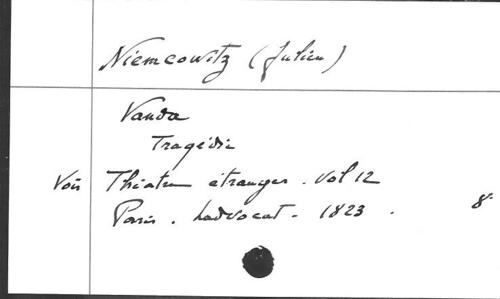 Niemcowitz (Julien)
Vanda
Tragédie
Voir Théatre étranger. Vol 12
Paris. Ladvocat. 1823. 8°